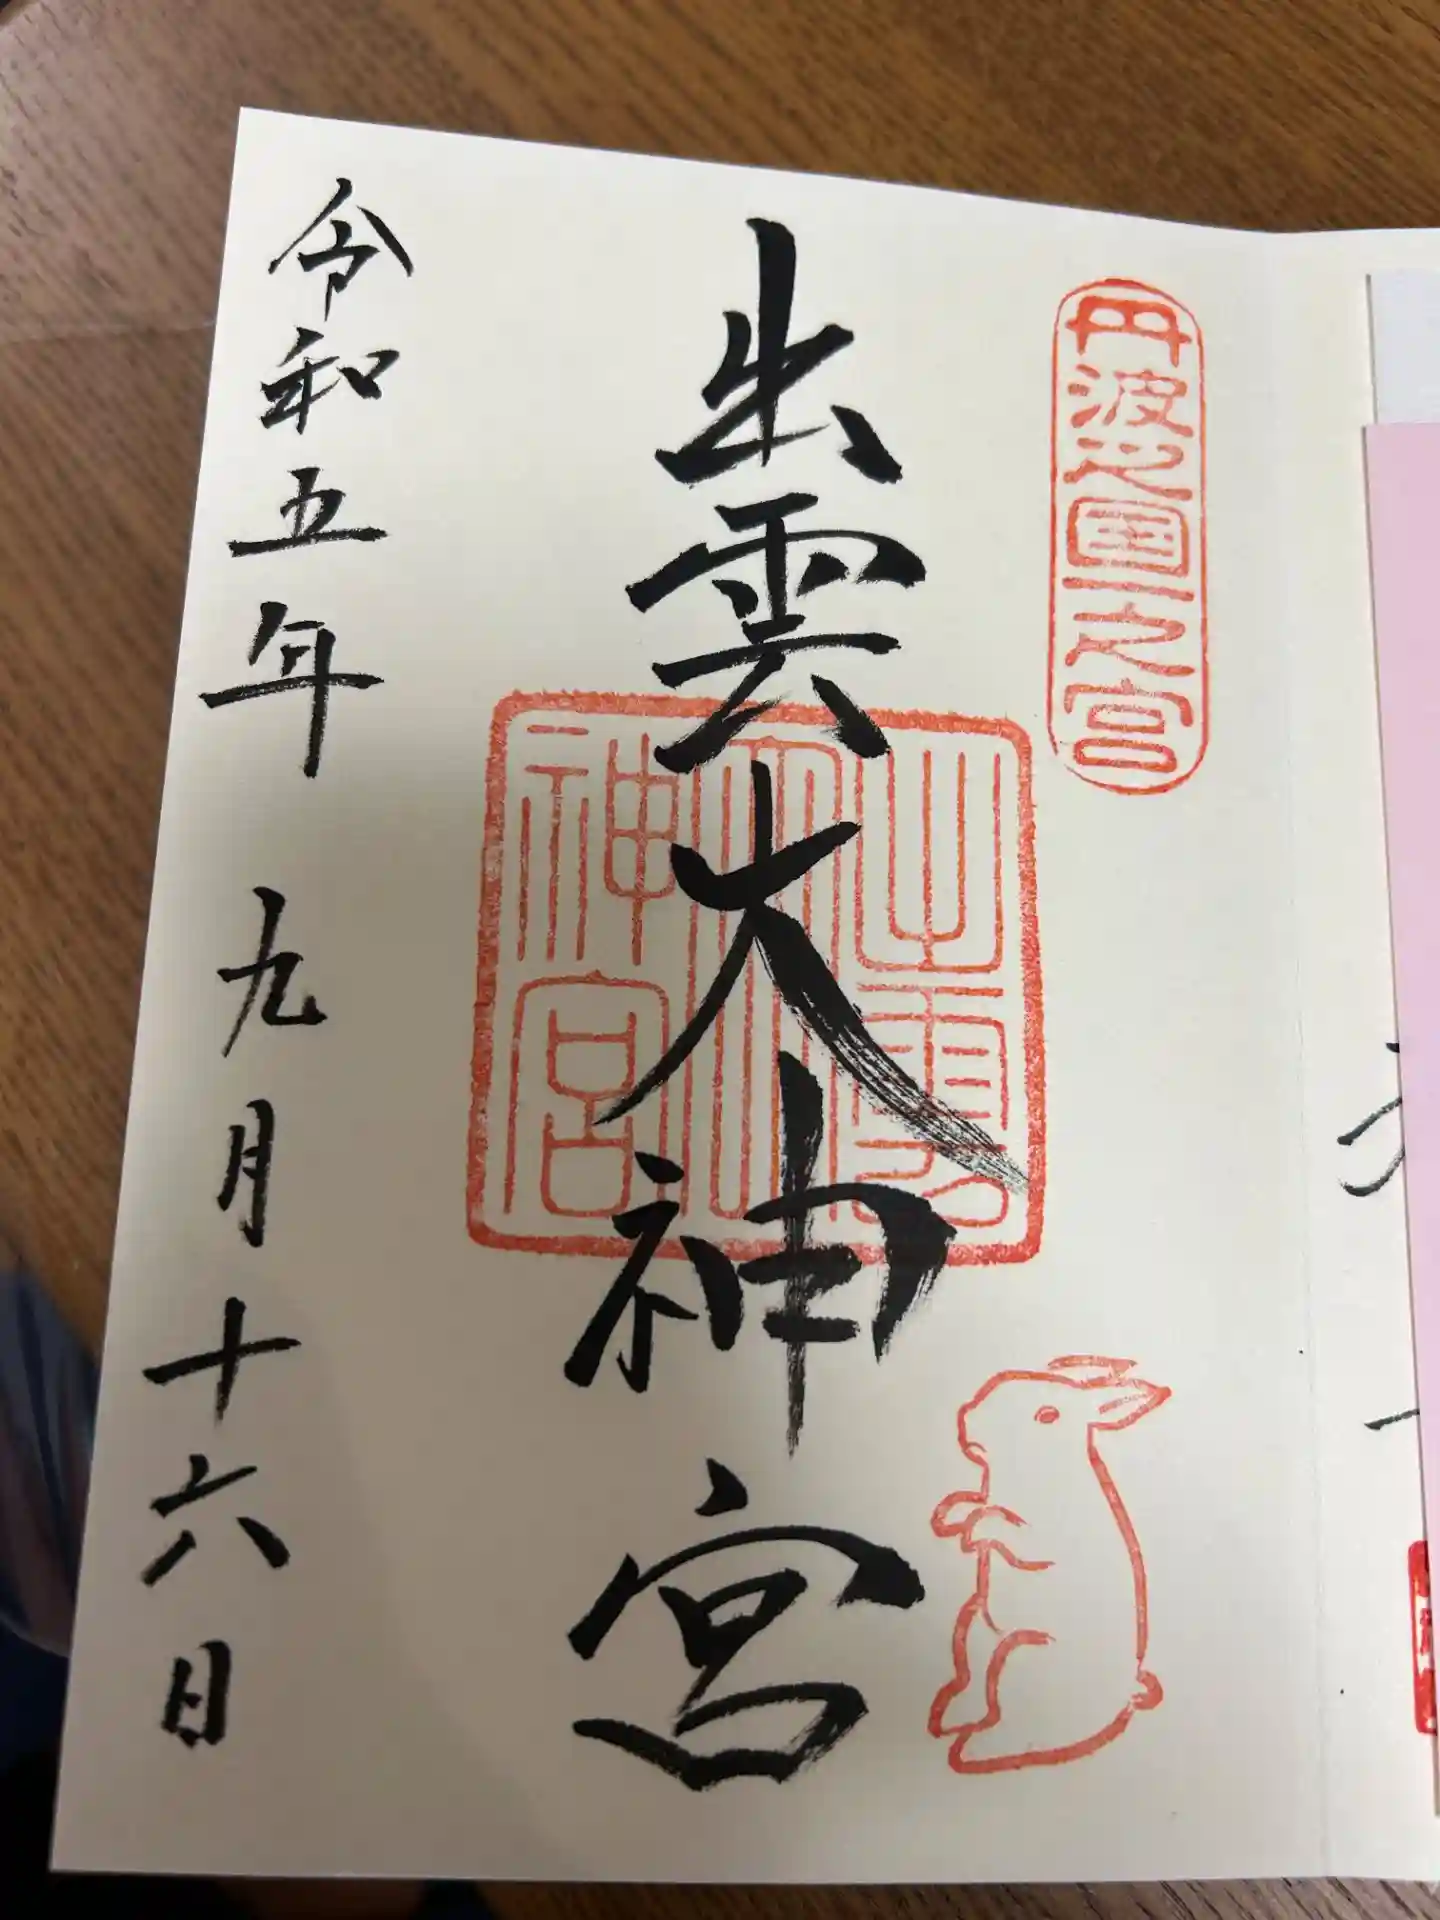 丹波之國一之宮
出雲大神宮
出雲
大
神宮
令和五年 九月十六日